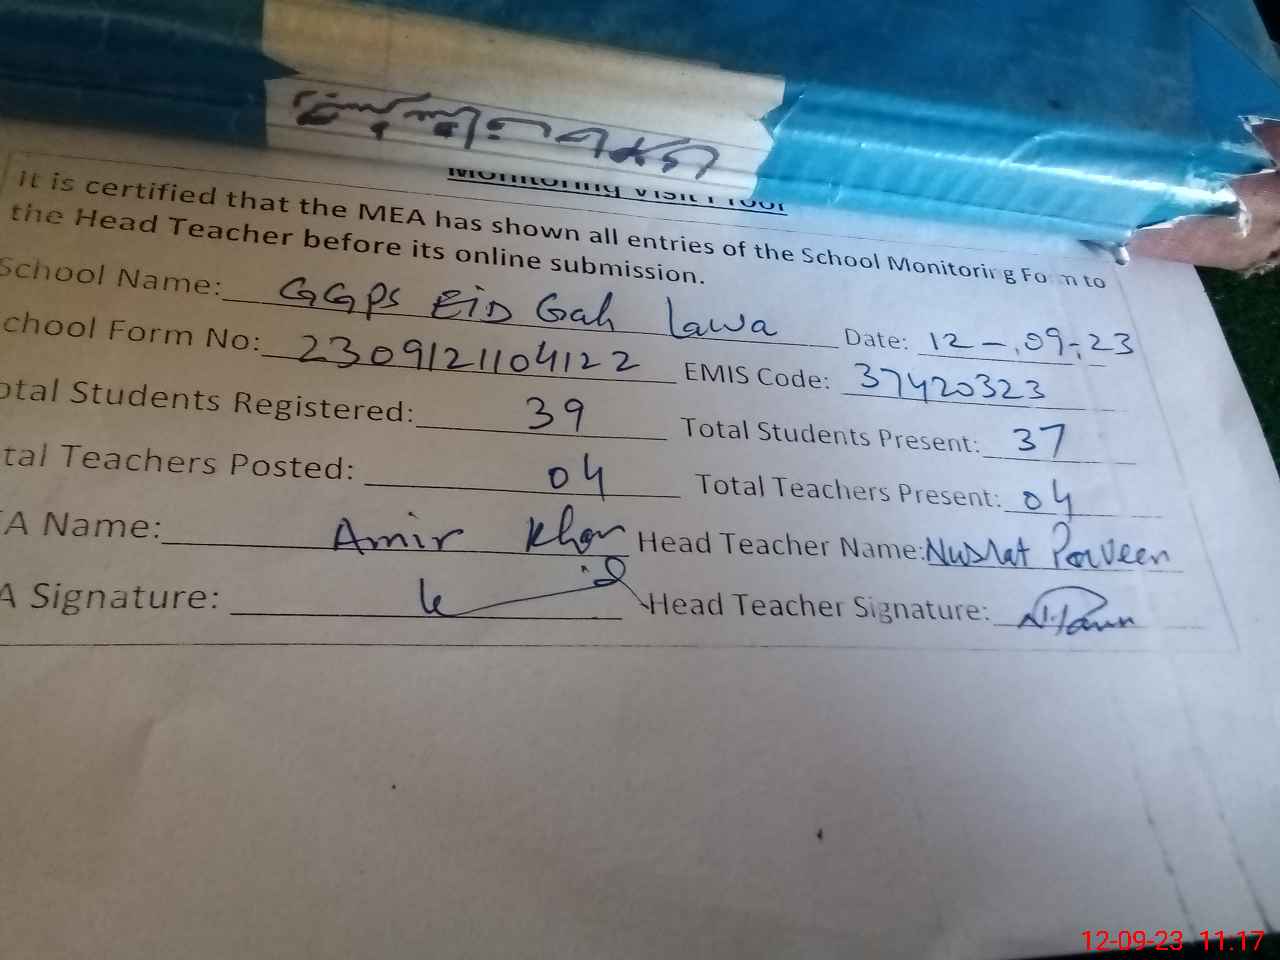 Monitoring Visit Proof
it is certified that the MEA has shown all entries of the School Monitoring Form to
the Head Teacher before its online submission.
School Name: GGPS EiD Gah Lawa Date: 12-09-23
chool Form No: 2309121104122 EMIS Code: 37420323
otal Students Registered: 39 Total Students Present: 37
tal Teachers Posted: 04 Total Teachers Present: 04
EA Name: Amir Khan Head Teacher Name: Nusrat Parveen
A Signature: Head Teacher Signature:
12-09-23 11.17